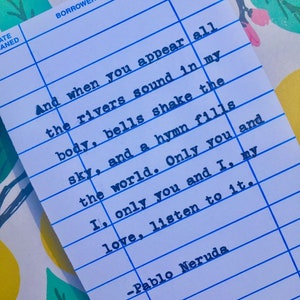 BORROWER
ATE
OANED
And when you appear all
the rivers sound in my
body, bells shake the
sky, and a hymn fills
the world. Only you and
I, only you and I, my
love, listen to it.
-Pablo Neruda